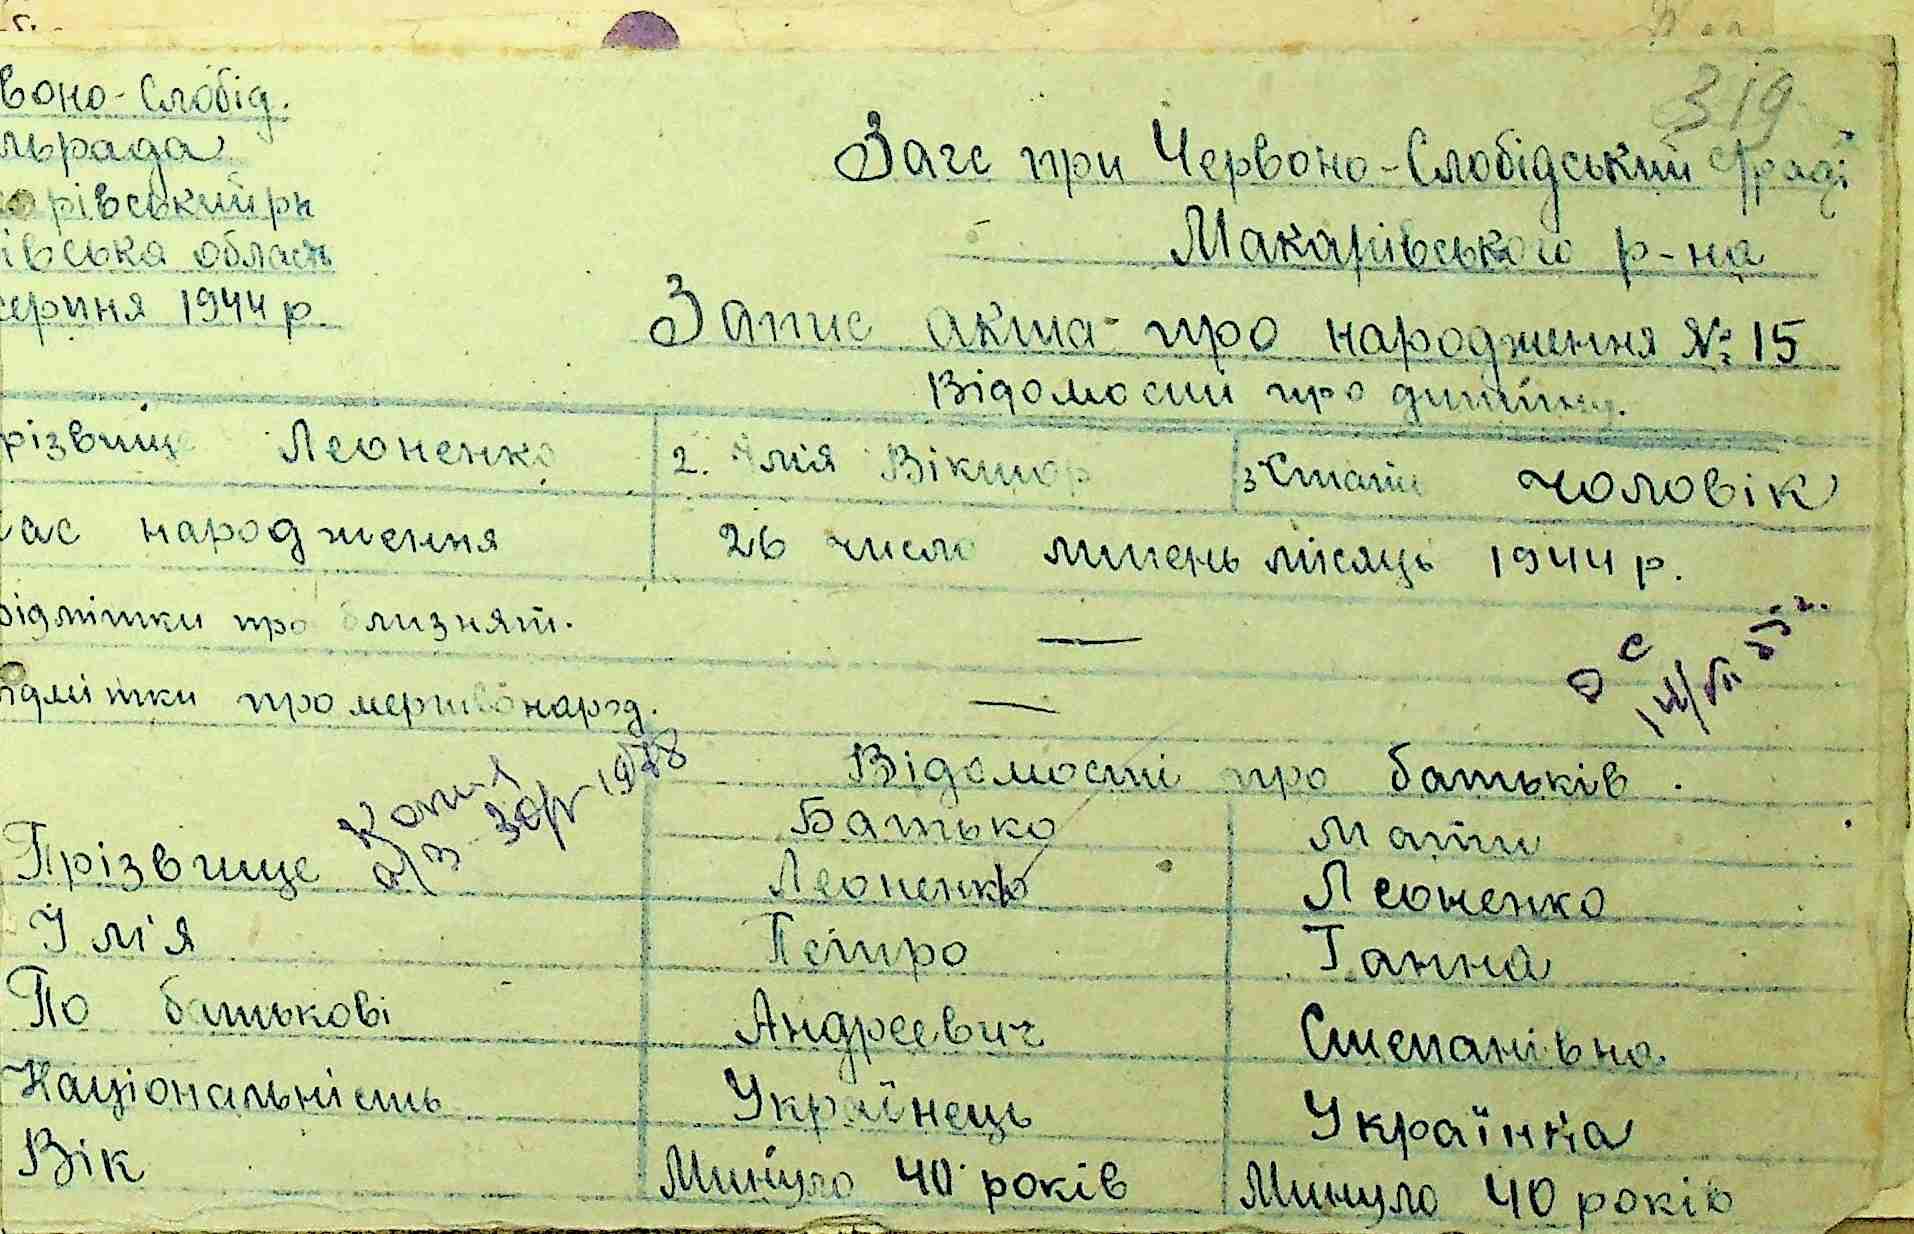 319
воно-Слобід.
льрада
арівський рн
івська область
серпня 1944 р.
Загс при Червоно-Слобідський с/раді
Макарівського р-на
Запис акта про народження № 15
Відомости про дитину.
різвище Леоненко 2. Імія Віктор 3 Стать чоловік
ас народження 26 число липень місяць 1944 р.
ідмітки про близнят. —
ідмітки про мертвонарод. —
Відомості про батьків.
Батько Мати
Прізвище Леоненко Леоненко
Імія Петро Ганна
По батькові Андреевич Степанівна
Національність Українець Українка
Вік Минуло 40 років Минуло 40 років